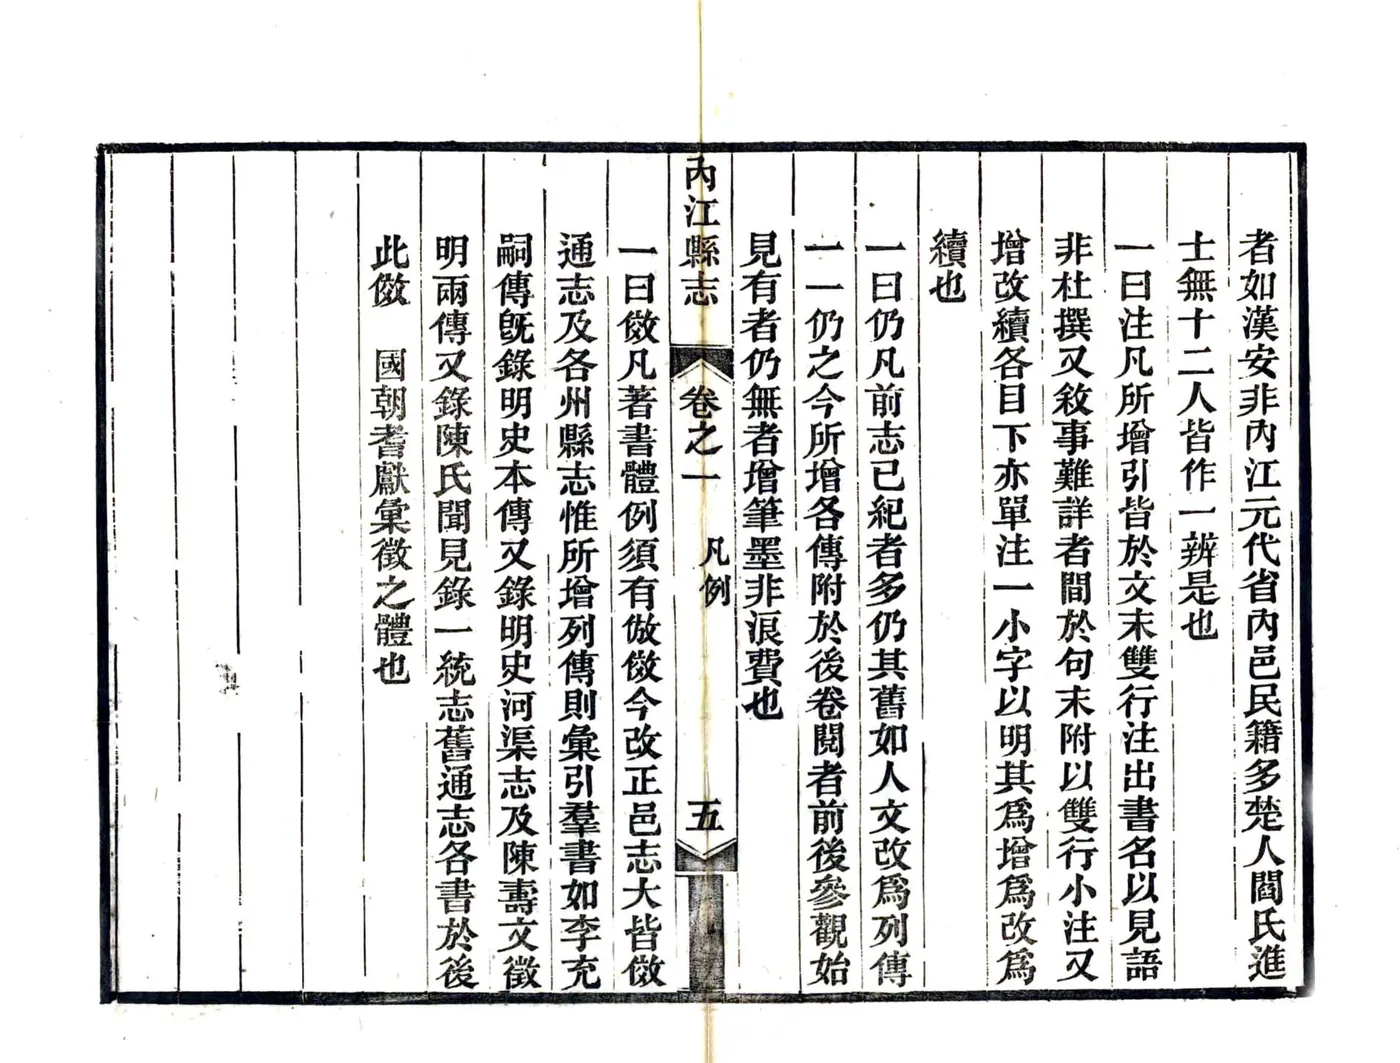 者如漢安非內江元代省內邑民籍多楚人閻氏進
士無十二人皆作一辨是也
一曰注凡所增引皆於文末雙行注出書名以見語
非杜撰又敘事難詳者間於句末附以雙行小注又
增改續各目下亦單注一小字以明其爲增爲改爲
續也
一曰仍凡前志已紀者多仍其舊如人文改爲列傳
一一仍之今所增各傳附於後卷閱者前後參觀始
見有者仍無者增筆墨非浪費也
內江縣志 卷之一 凡例 五
一曰倣凡著書體例須有倣倣今改正邑志大皆倣
通志及各州縣志惟所增列傳則彙引羣書如李充
嗣傳旣錄明史本傳又錄明史河渠志及陳壽文徵
明兩傳又錄陳氏聞見錄一統志舊通志各書於後
此倣 國朝耆獻彙徵之體也